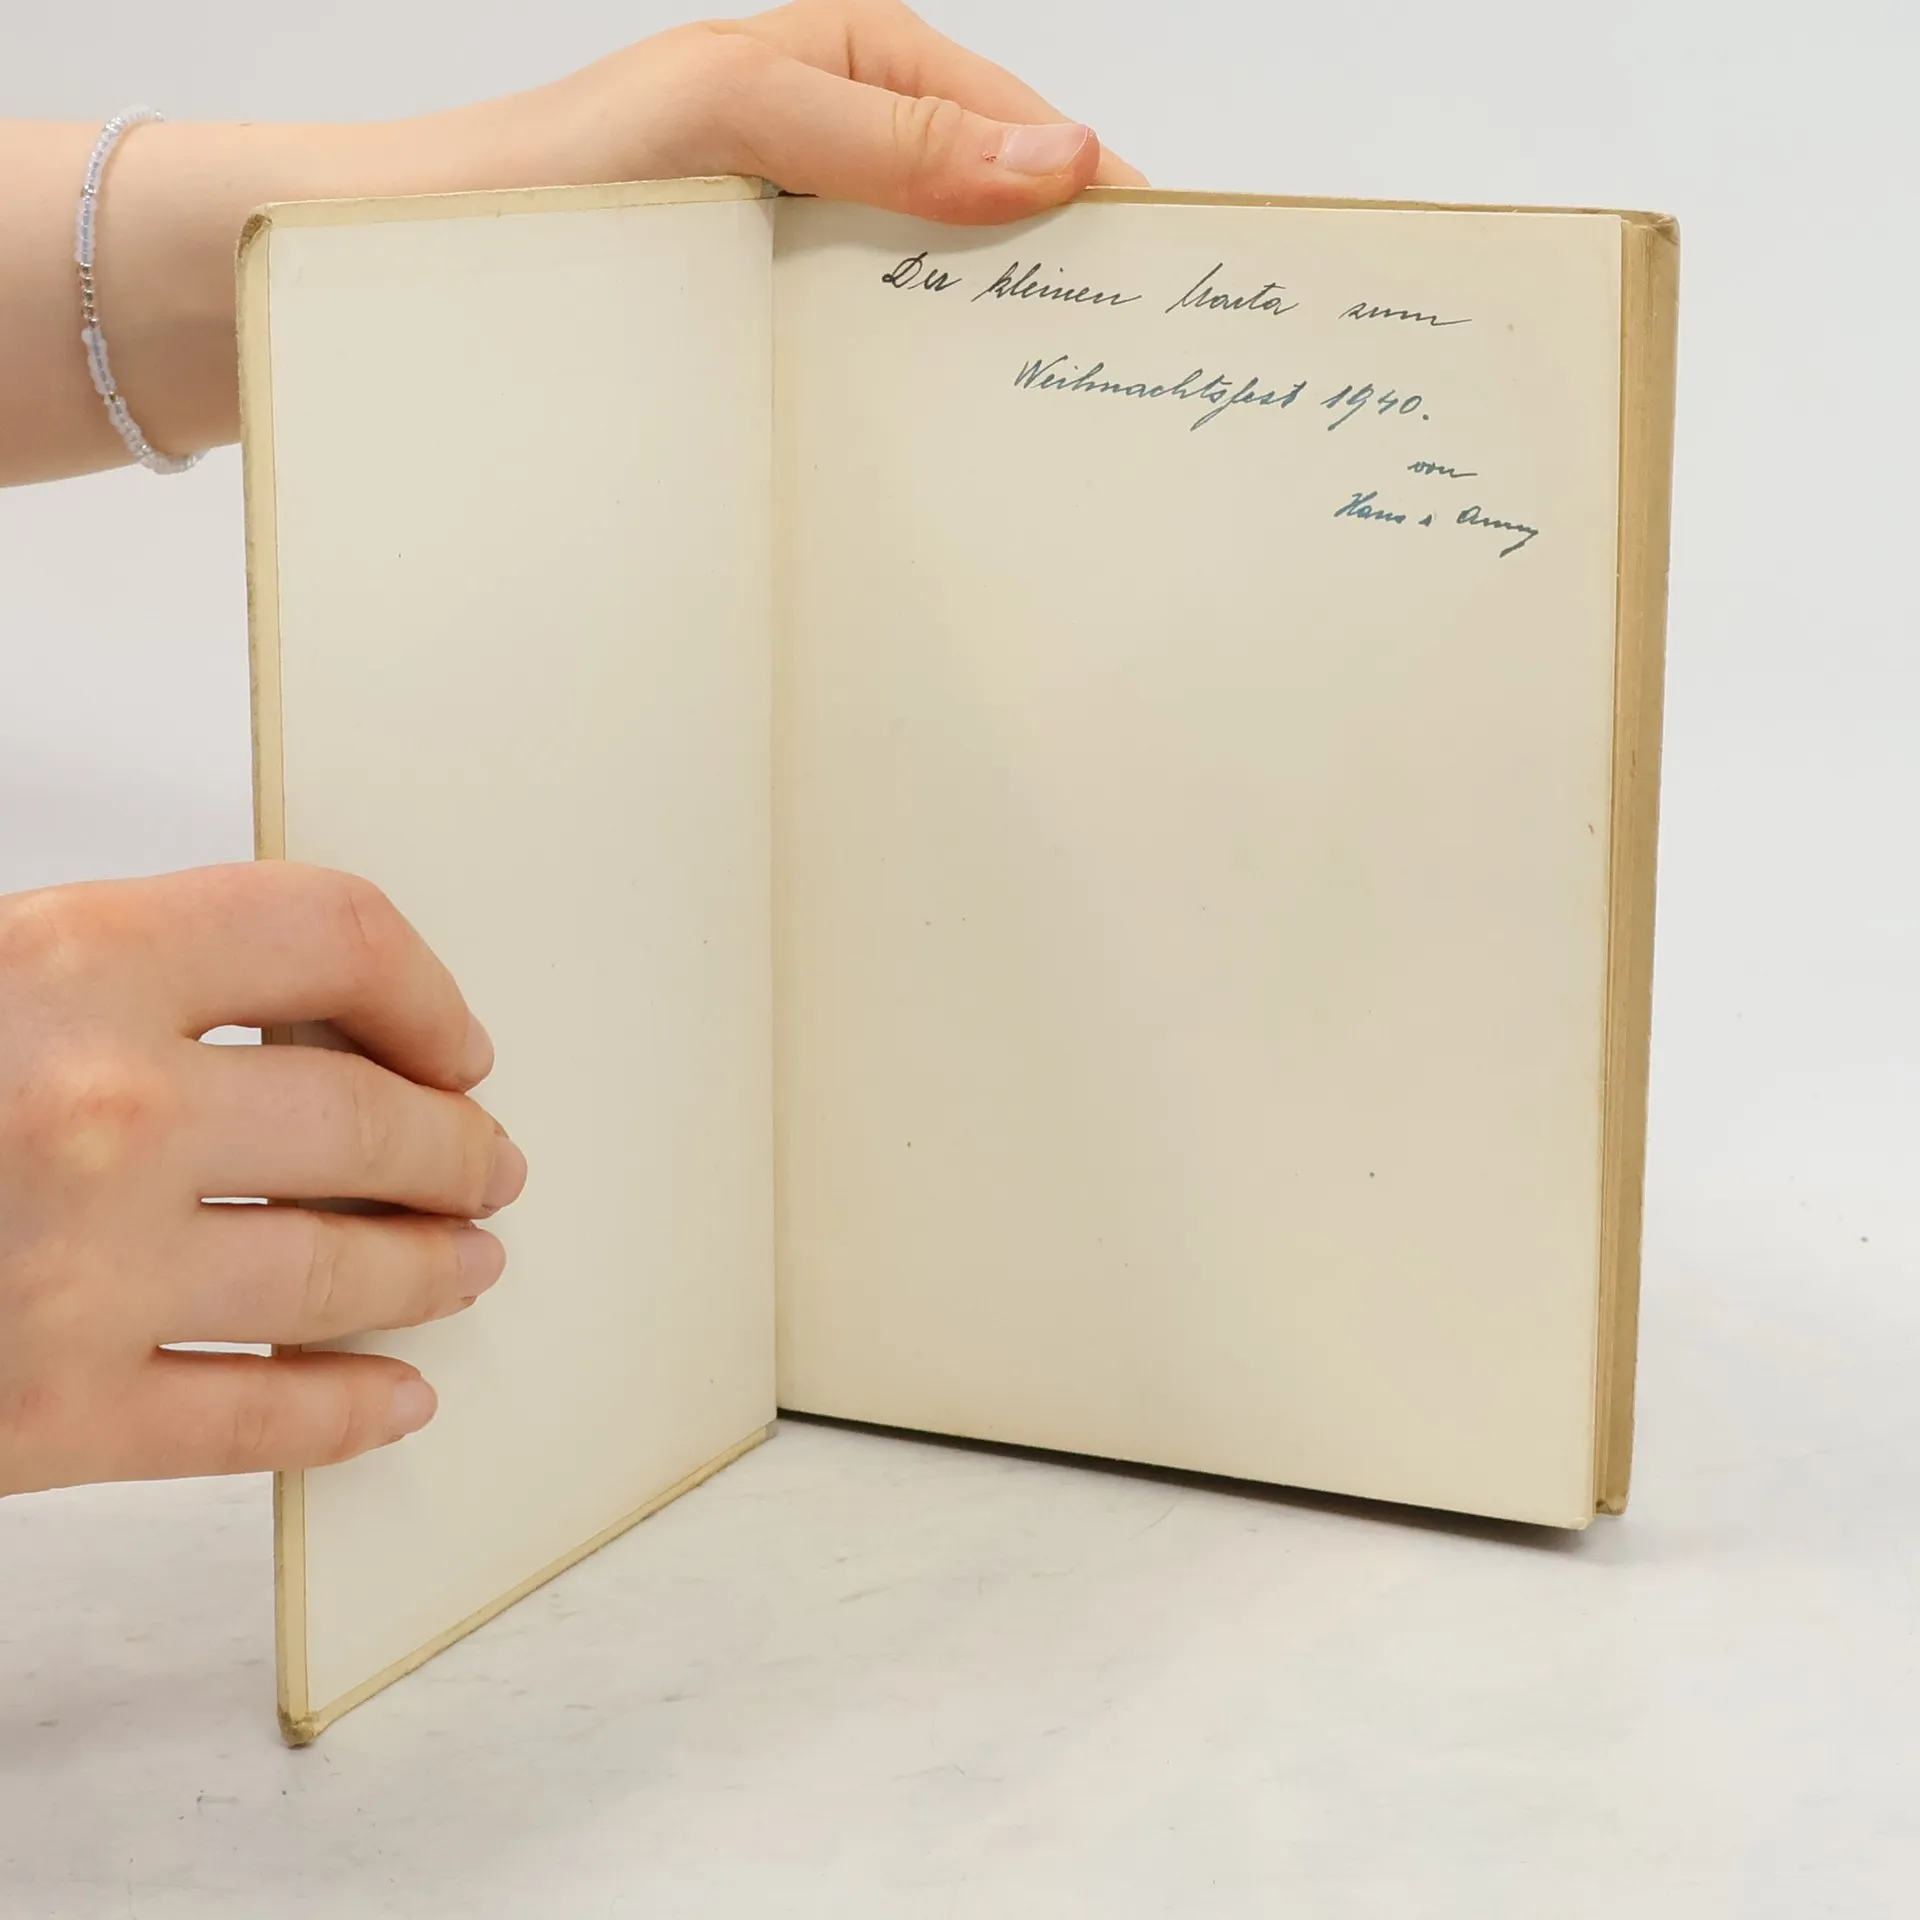 Der kleinen Marta zum
Weihnachtsfest 1940.
von
Hans & Anny